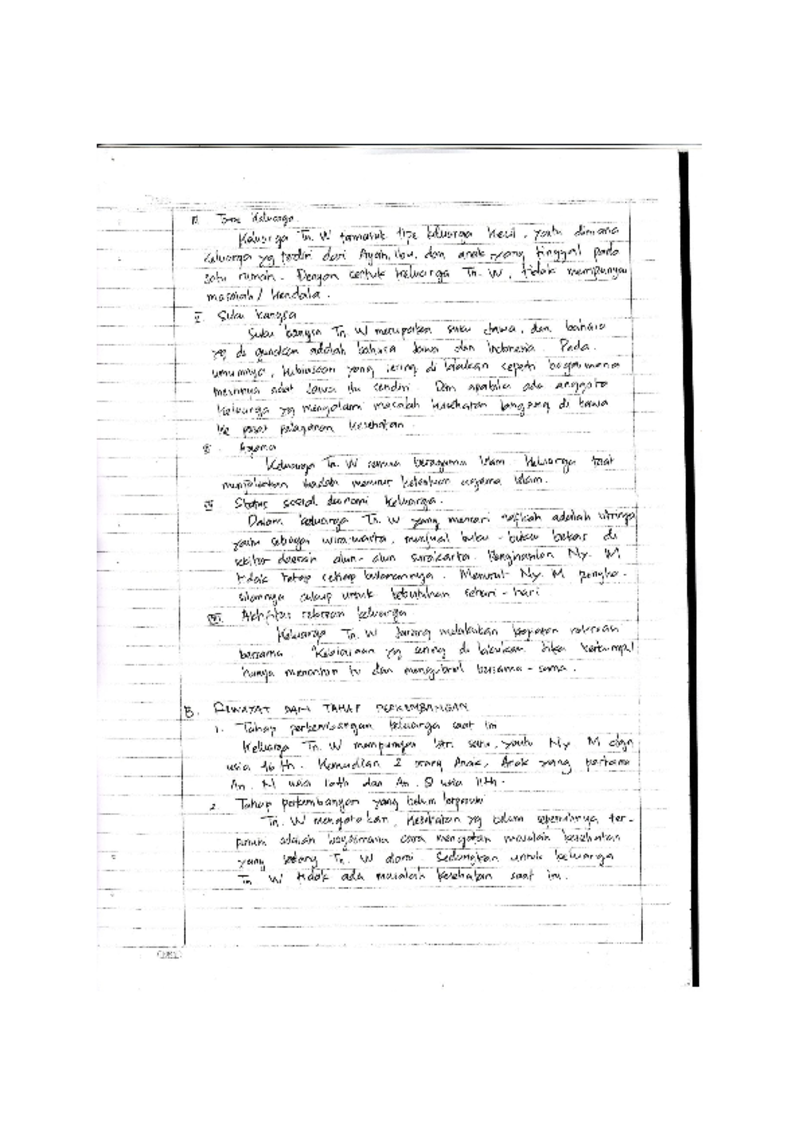 IV. Type Keluarga
Keluarga Tn. W termasuk tipe keluarga kecil, yaitu dimana
keluarga yg terdiri dari Ayah, ibu, dan anak yang tinggal pada
satu rumah. Dengan bentuk keluarga Tn. W, tidak mempunyai
masalah / kendala.
V. Suku bangsa
Suku bangsa Tn W merupakan suku Jawa, dan bahasa
yg di gunakan adalah bahasa Jawa dan Indonesia. Pada
umumnya, kebiasaan yang sering di lakukan seperti bagaimana
adat Jawa itu sendiri. Dan apabila ada anggota
keluarga yg mengalami masalah kesehatan langsung di bawa
ke pusat pelayanan kesehatan.
Agama
Keluarga Tn. W semua beragama Islam. Keluarga taat
menjalankan ibadah menurut ketentuan agama Islam.
Status sosial ekonomi keluarga.
Dalam keluarga Tn. W yang mencari nafkah adalah istrinya
yaitu sebagai wiraswasta, menjual buku - buku bekas di
sekitar daerah alun - alun surakarta. Penghasilan Ny. M
tidak tetap setiap bulannya. Menurut Ny. M pengha-
silannya cukup untuk kebutuhan sehari - hari
Aktifitas rekreasi keluarga
Keluarga Tn. W jarang melakukan kegiatan rekreasi
bersama. Kebiasaan yg sering di lakukan jika berkumpul
hanya menonton tv dan mengobrol bersama - sama.
B. RIWAYAT DAN TAHAP PERKEMBANGAN
1. Tahap perkembangan keluarga saat ini
Keluarga Tn. W mempunyai istri satu, yaitu Ny M dgn
usia 46 th. Kemudian 2 orang Anak, Anak yang pertama
An. N usia th dan An. S usia 11th.
2. Tahap perkembangan yang belum terpenuhi
Tn. W mengatakan, kesehatan yg belum sepenuhnya ter-
penuhi adalah bagaimana cara mengatasi masalah kesehatan
yang sedang Tn. W alami. Sedangkan untuk keluarga
Tn W tidak ada masalah kesehatan saat ini.